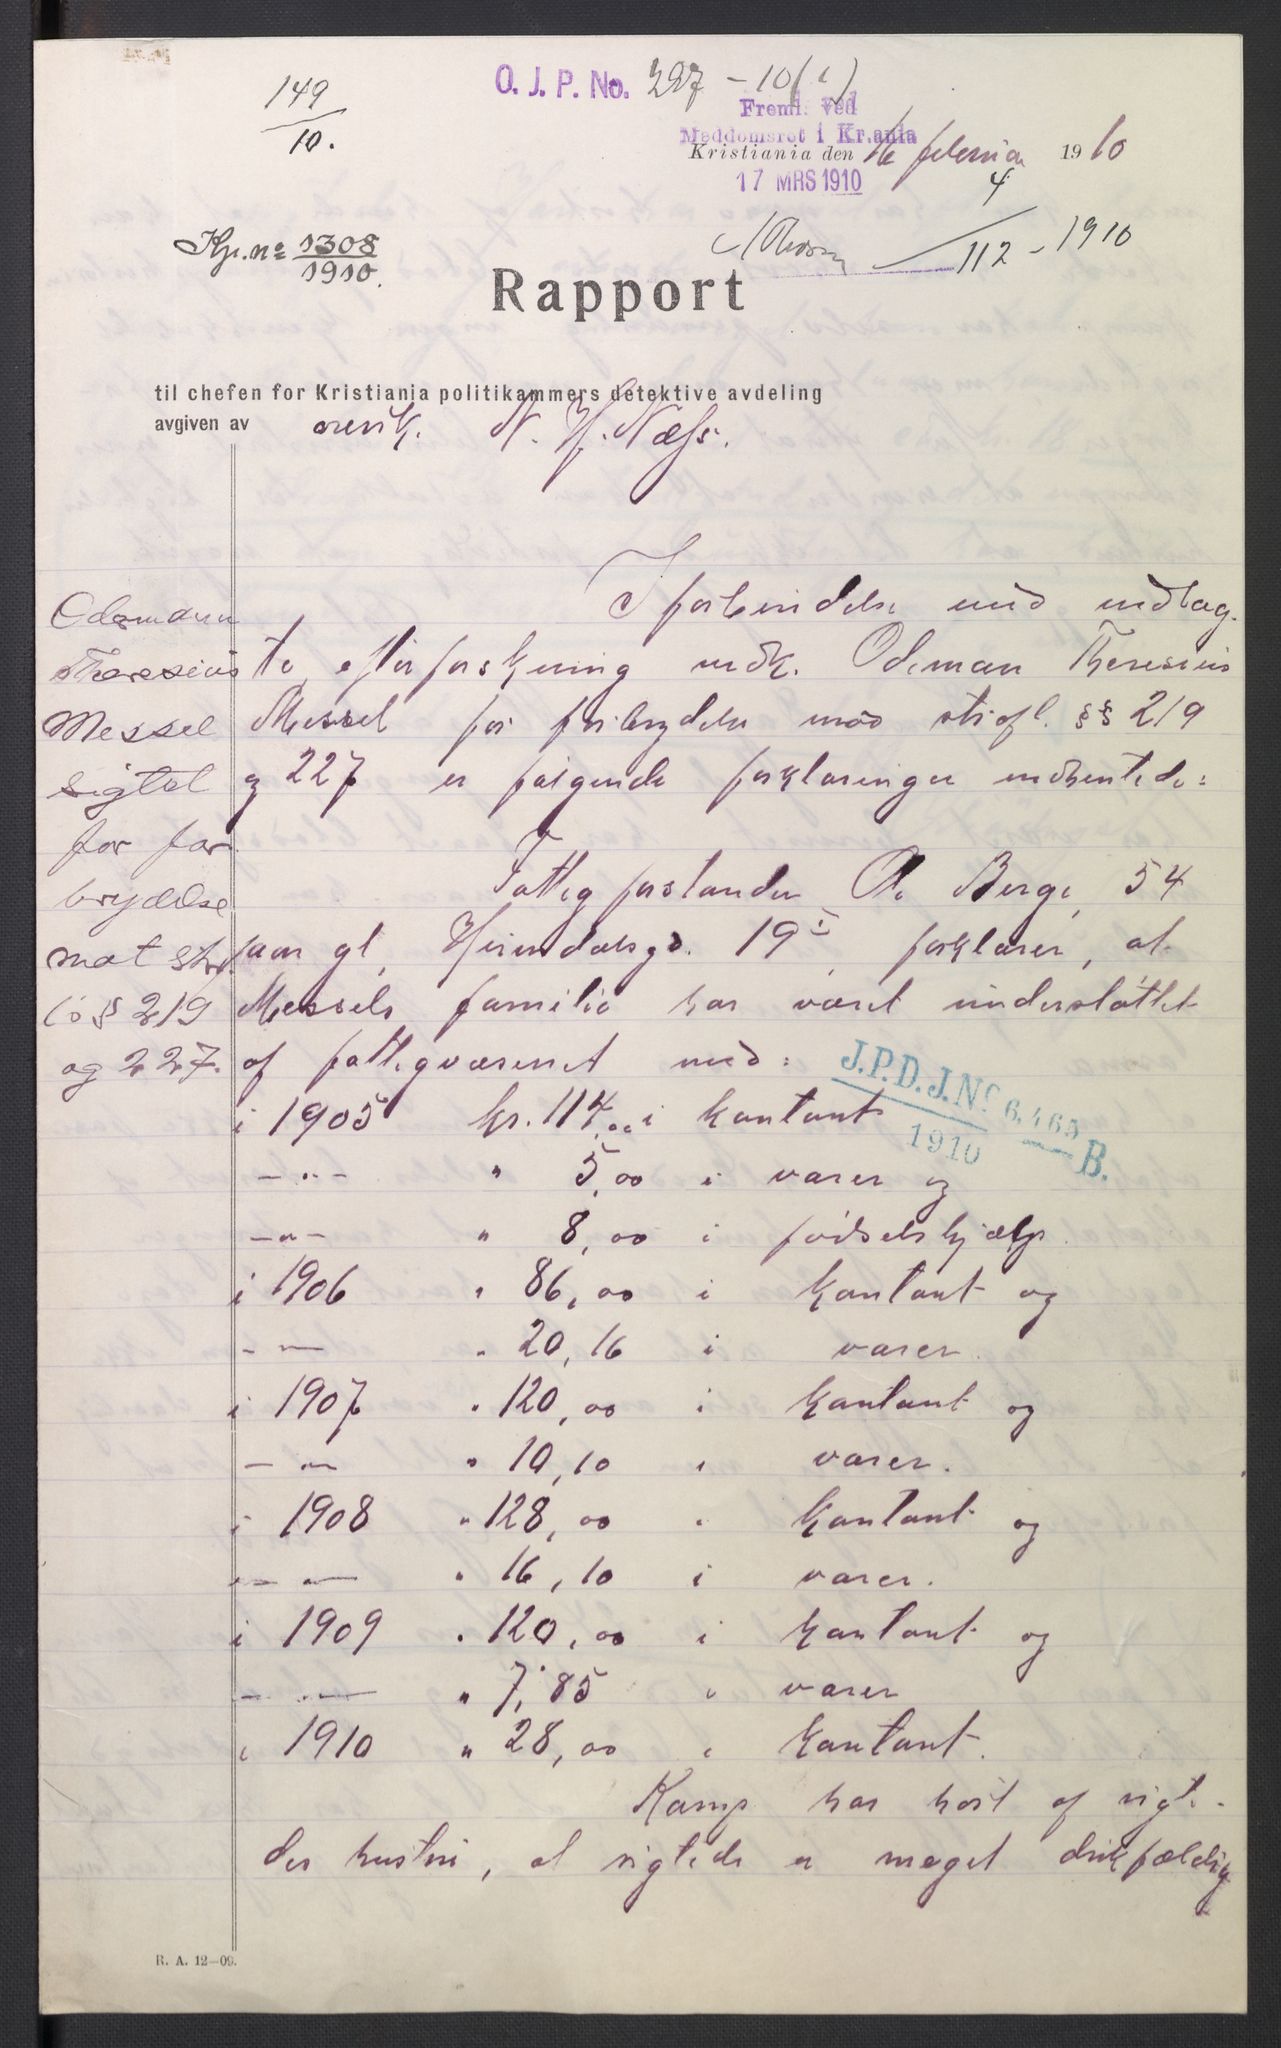 149
10.
O. J. P. No. 327 - 10(1)
Freml. ved
Meddomsret i Kr.ania
Kristiania den 16 februar 1910
17 MRS 1910
4
112 - 1910
Kp. no 1308
1910.
Rapport
til chefen for Kristiania politikammers detektive avdeling
avgiven av N. H. Næss.
Odemann
Theresius
Messel
sigtet
for for
brydelse
mot strf
l's § 219
og 227.
I forbindelse med indtag
te efterforskning vedk. Odeman Theresius
Messel for forbrydelse mod strafl. §§ 219
og 227 er følgende forklaringer indhentede:
Fattigforstander Ole Berge, 54
aar gl, Heimdalsgd. 19 I, forklarer, at
Messels familie har været understøttet
af fattigvæsenet med:
J.P.D.J.Nº 6,465 B.
1910
i 1905 kr. 114,00 i kontant
- " - " 5,00 i varer og
- " - " 8,00 i fødselshjælp.
i 1906 " 86,00 i kontant og
- " - " 20,16 i varer.
i 1907 " 120,00 i kontant og
- " - " 10,10 i varer.
i 1908 " 128,00 i kontant og
- " - " 16,10 i varer.
i 1909 " 120,00 i kontant og
- " - " 7,85 i varer
i 1910 " 28,00 i kontant.
Komp har hørt af sigt-
des hustru, at sigtede er meget drikfældig
R. A. 12—09.